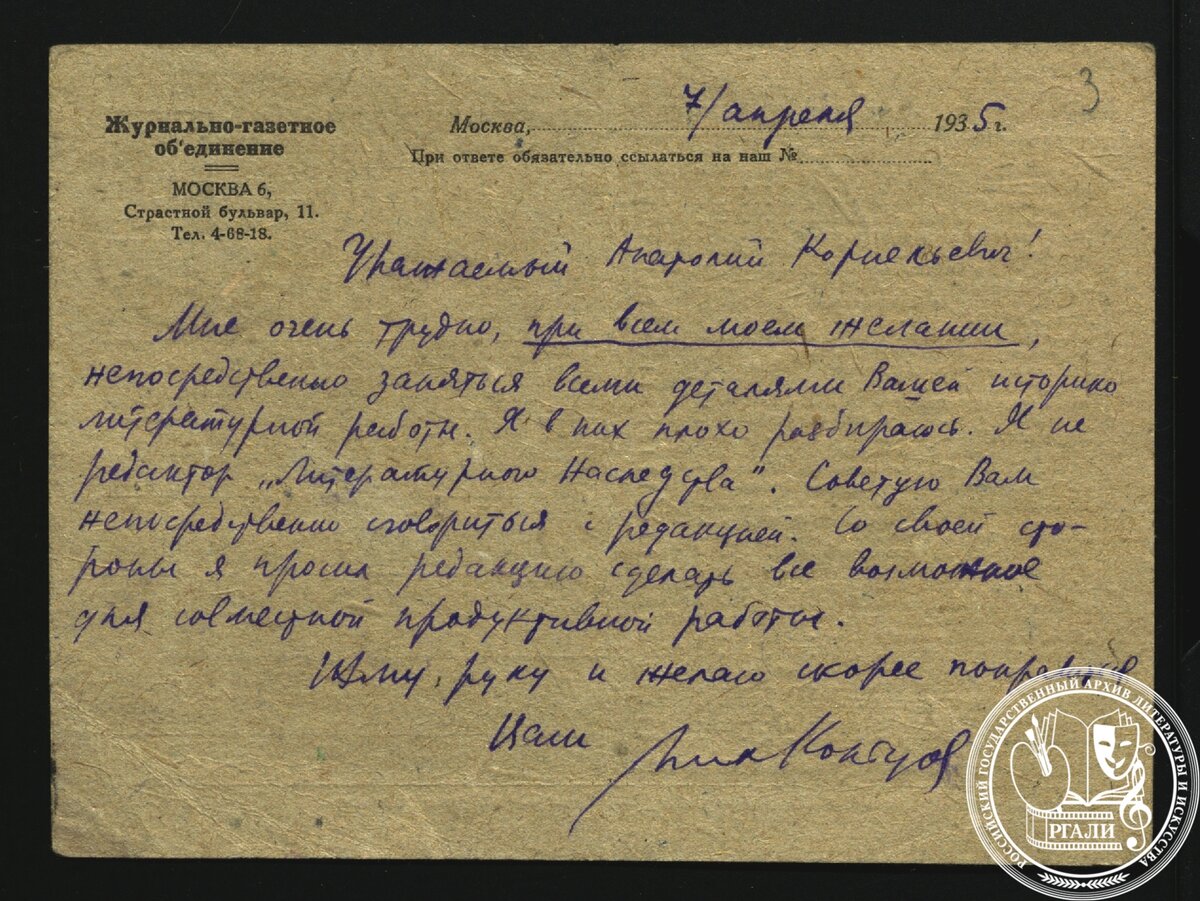 3
Журнально-газетное
об'единение
МОСКВА 6,
Страстной бульвар, 11.
Тел. 4-68-18.
Москва, 7/апреля 1935 г.
При ответе обязательно ссылаться на наш №
Уважаемый Анатолий Корнельевич!
Мне очень трудно, при всем моем желании,
непосредственно заняться всеми деталями Вашей историко
литературной работы. Я в них плохо разбираюсь. Я не
редактор „Литературного Наследства". Советую Вам
непосредственно сговориться с редакцией. Со своей сто-
роны я просил редакцию сделать все возможное
для совместной продуктивной работы.
Жму руку и желаю скорее
Ваш Мих Кольцов
РОССИЙСКИЙ ГОСУДАРСТВЕННЫЙ АРХИВ ЛИТЕРАТУРЫ И ИСКУССТВА
РГАЛИ